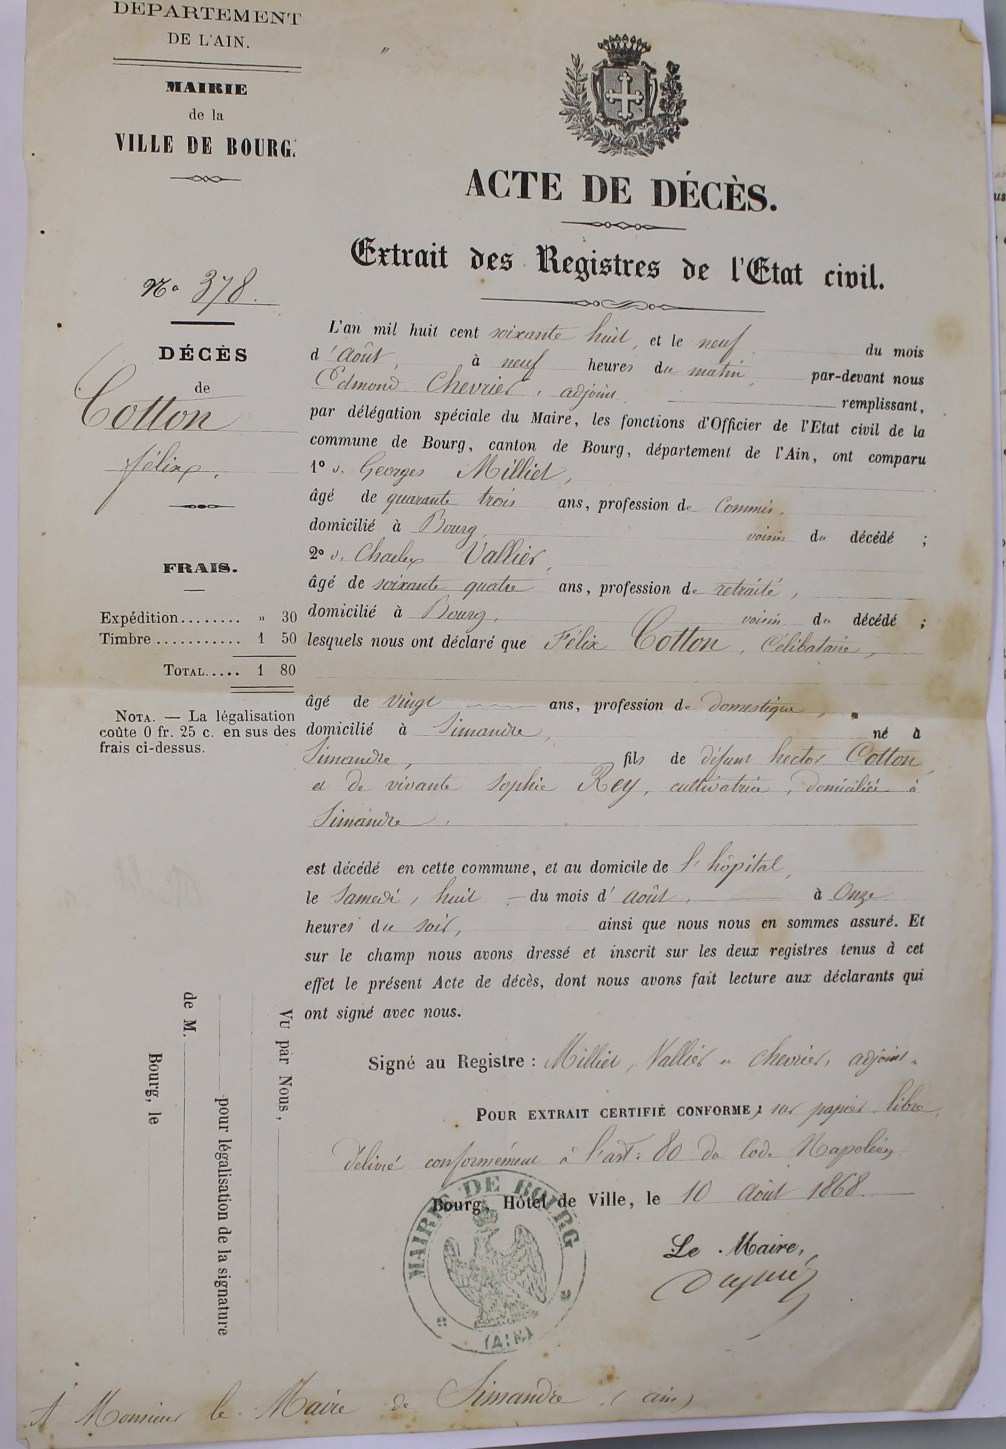 DEPARTEMENT
DE L'AIN.
MAIRIE
de la
VILLE DE BOURG.
ACTE DE DÉCÈS.
Extrait des Registres de l'Etat civil.
No 378.
DÉCÈS
de
Cotton
félix.
FRAIS.
Expédition........ " 30
Timbre........... 1 50
TOTAL..... 1 80
NOTA. — La légalisation
coûte 0 fr. 25 c. en sus des
frais ci-dessus.
L'an mil huit cent soixante huit, et le neuf du mois
d'Août, à neuf heures du matin, par-devant nous
Edmond Chevrier, adjoint remplissant,
par délégation spéciale du Maire, les fonctions d'Officier de l'Etat civil de la
commune de Bourg, canton de Bourg, département de l'Ain, ont comparu
1º s. Georges Milliet,
âgé de quarante trois ans, profession de Commis.
domicilié à Bourg. voisin du décédé ;
2º s. Charles Vallier,
âgé de soixante quatre ans, profession de retraité,
domicilié à Bourg. voisin du décédé ;
lesquels nous ont déclaré que Félix Cotton, Célibataire,
âgé de vingt ans, profession de domestique,
domicilié à Simandre, né à
Simandre, fils de défunt hector Cotton,
et de vivante sophie Rey, cultivatrice, domiciliée à
Simandre.
est décédé en cette commune, et au domicile de l'hôpital,
le samedi, huit du mois d'août, à Onze
heures du soir, ainsi que nous nous en sommes assuré. Et
sur le champ nous avons dressé et inscrit sur les deux registres tenus à cet
effet le présent Acte de décès, dont nous avons fait lecture aux déclarants qui
ont signé avec nous.
Signé au Registre : Milliet, Vallier & Chevrier, adjoint.
POUR EXTRAIT CERTIFIÉ CONFORME, sur papier libre,
délivré conformément à l'art. 80 du Code Napoléon.
Bourg, Hôtel de Ville, le 10 Août 1868.
Le Maire,
MAIRIE DE BOURG
(AIN)
Vu par Nous,
pour légalisation de la signature
de M.
Bourg, le
A Monsieur le Maire de Simandre (ain)